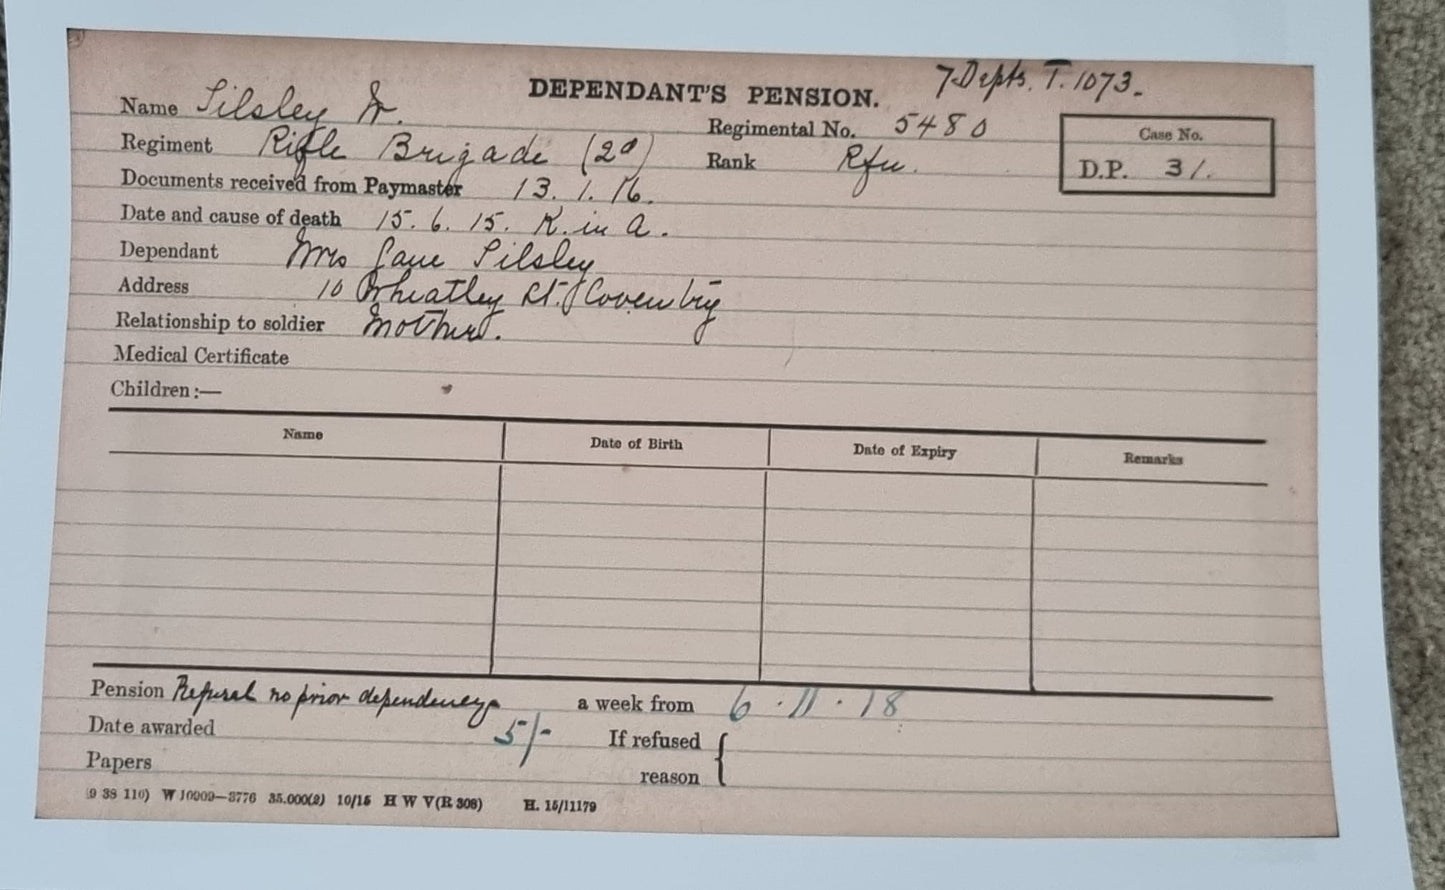 DEPENDANT'S PENSION. 7 Depts. T. 1073.
Name Tilsley W.
Regimental No. 5480
Case No.
Regiment Rifle Brigade (2d)
Rank Rfn.
D.P. 31.
Documents received from Paymaster 13.1.16.
Date and cause of death 15.6.15. K. in a.
Dependant Mrs Jane Tilsley
Address 10 Wheatley St. Coventry
Relationship to soldier Mother.
Medical Certificate
Children:—
Name Date of Birth Date of Expiry Remarks
Pension Refusal no prior dependency a week from 6.11.18
Date awarded 5/- If refused
Papers reason
(9 38 110) W 10909—3776 35.000(2) 10/15 H W V(R 308) H. 15/11179